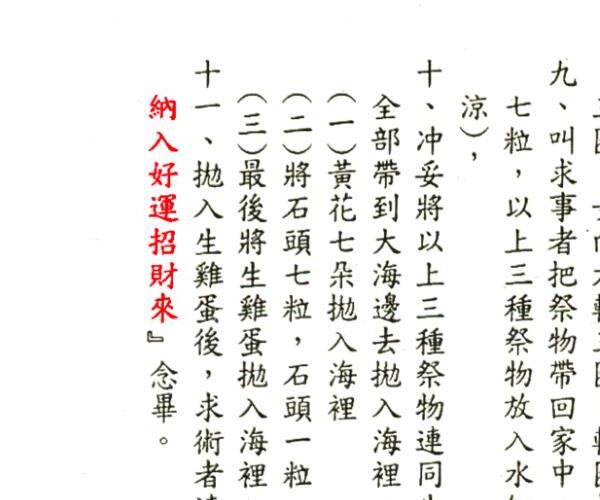 九、叫求事者把祭物帶回家中
七粒，以上三種祭物放入水
涼），
十、冲妥將以上三種祭物連同
全部帶到大海邊去拋入海裡
（一）黃花七朵拋入海裡
（二）將石頭七粒，石頭一粒
（三）最後將生雞蛋拋入海裡
十一、拋入生雞蛋後，求術者
納入好運招財來』念畢。